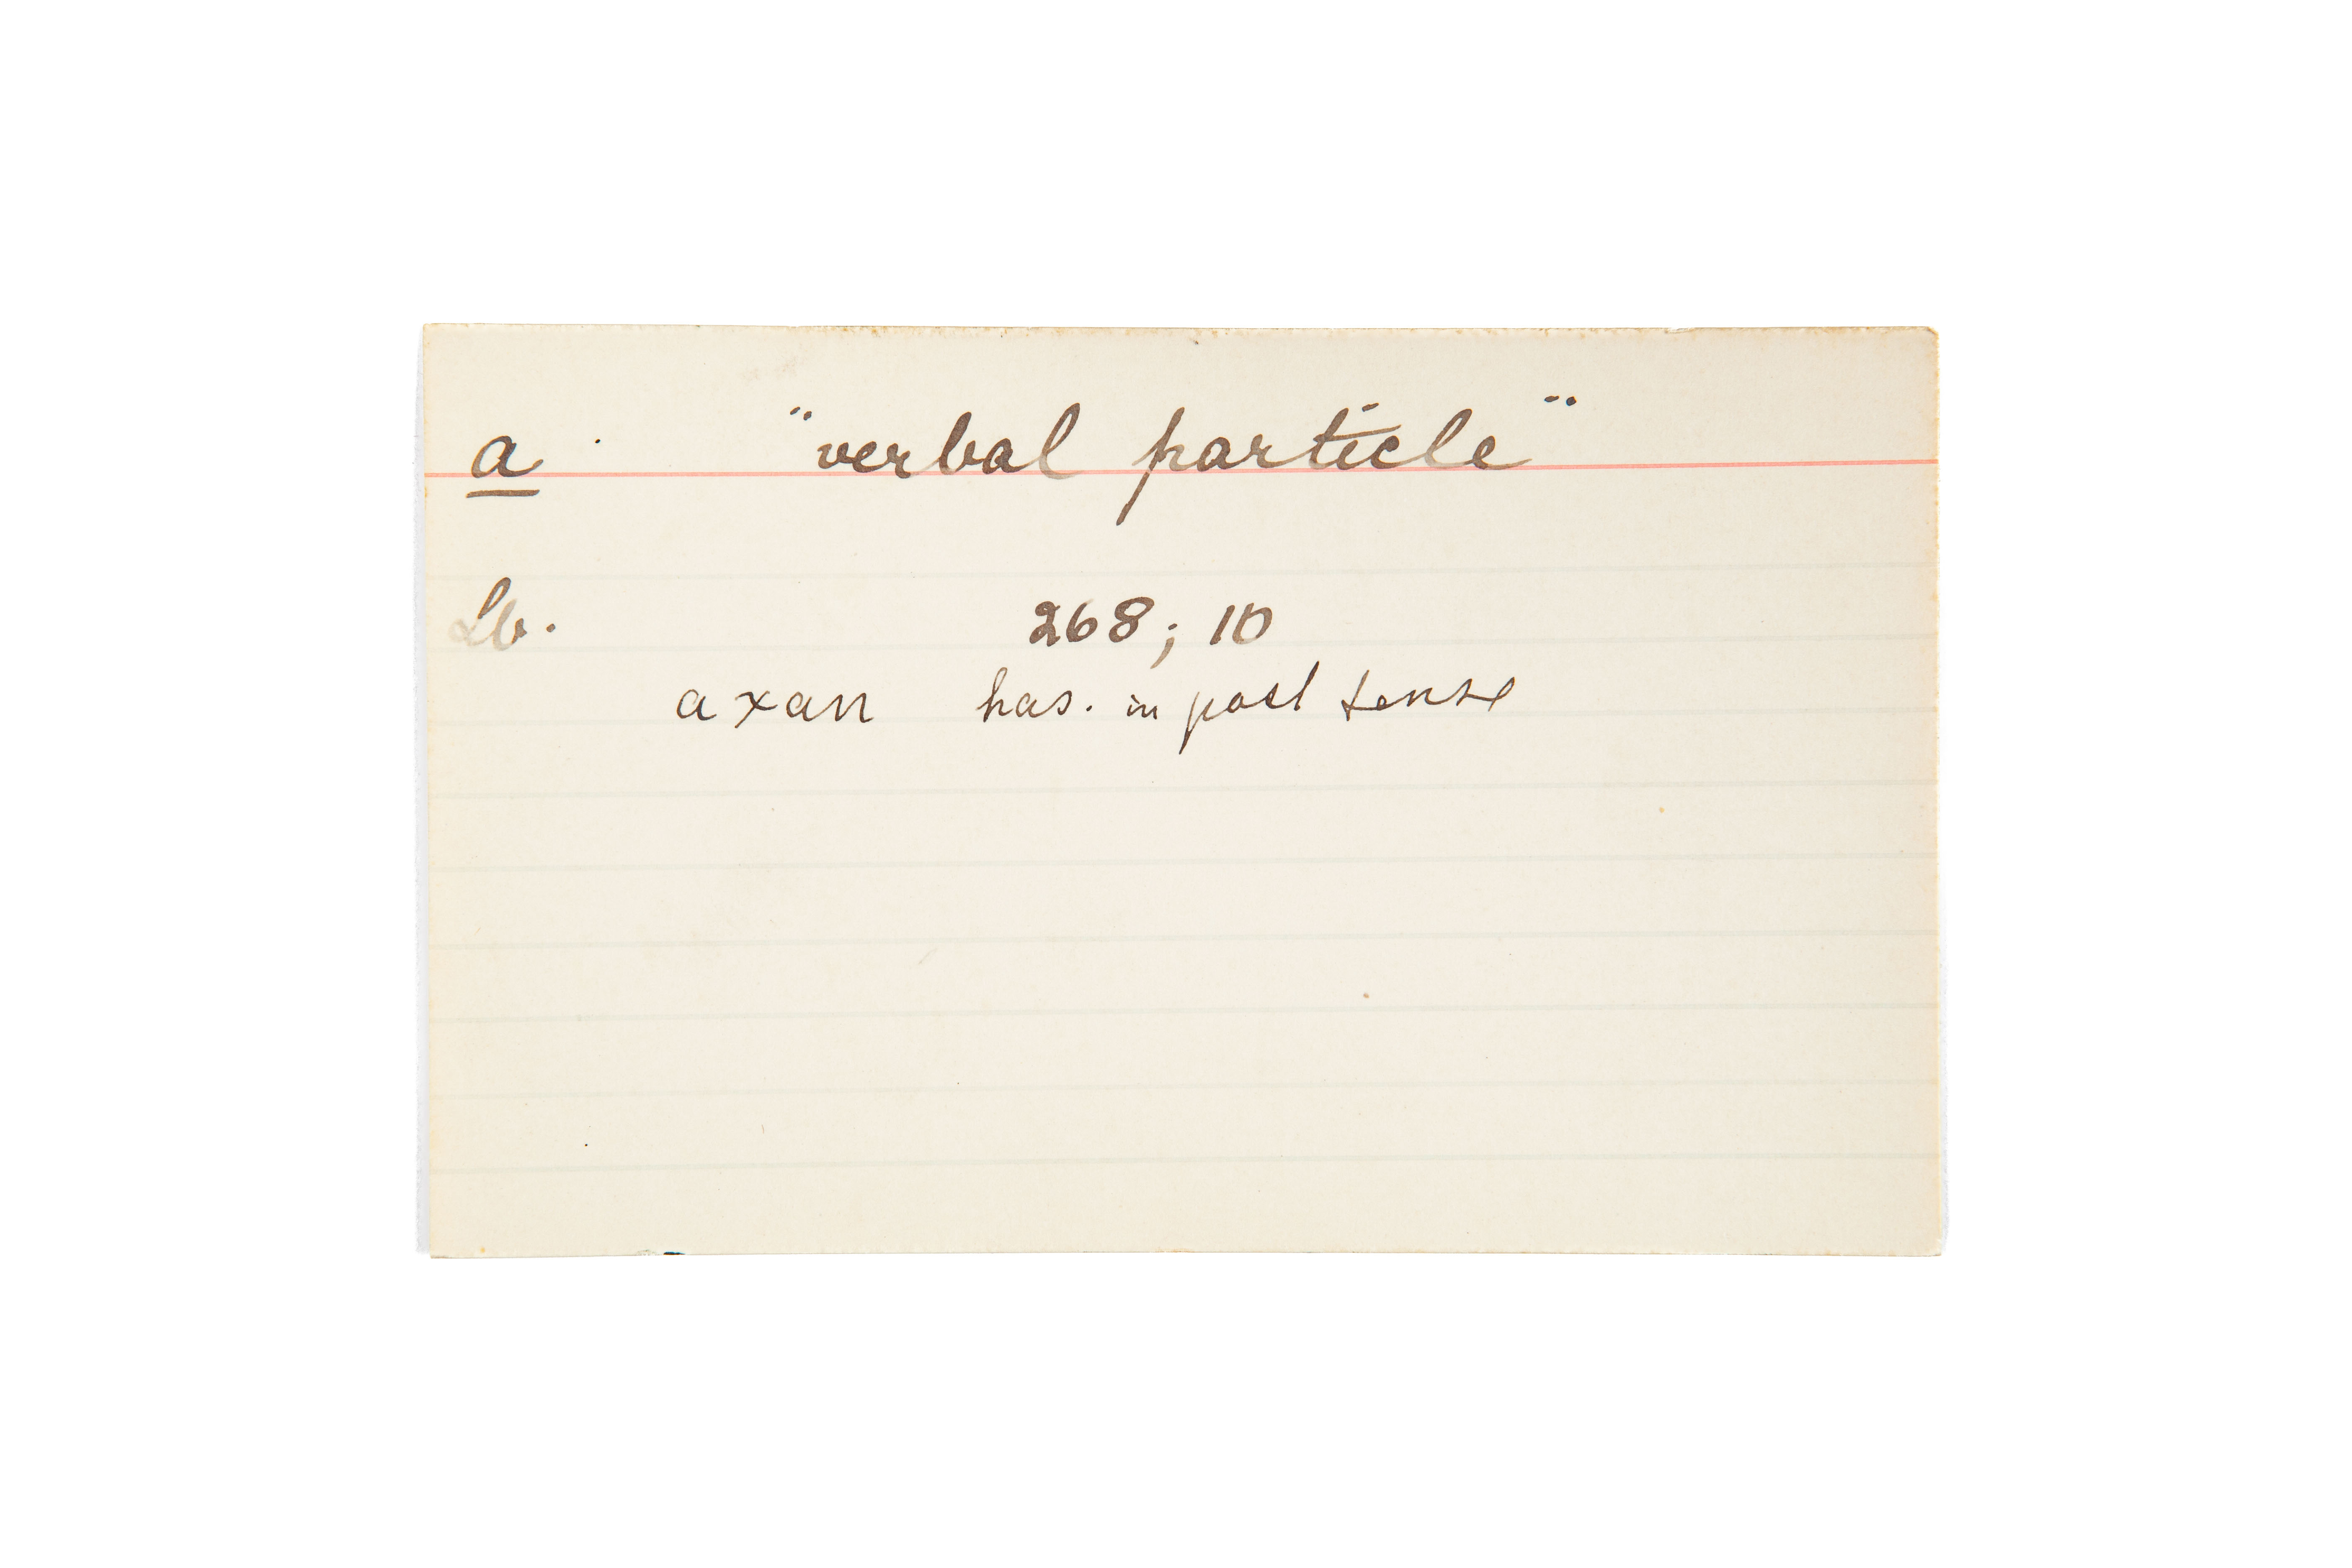 a "verbal particle"
Lb. 268; 10
axan has. in past tense